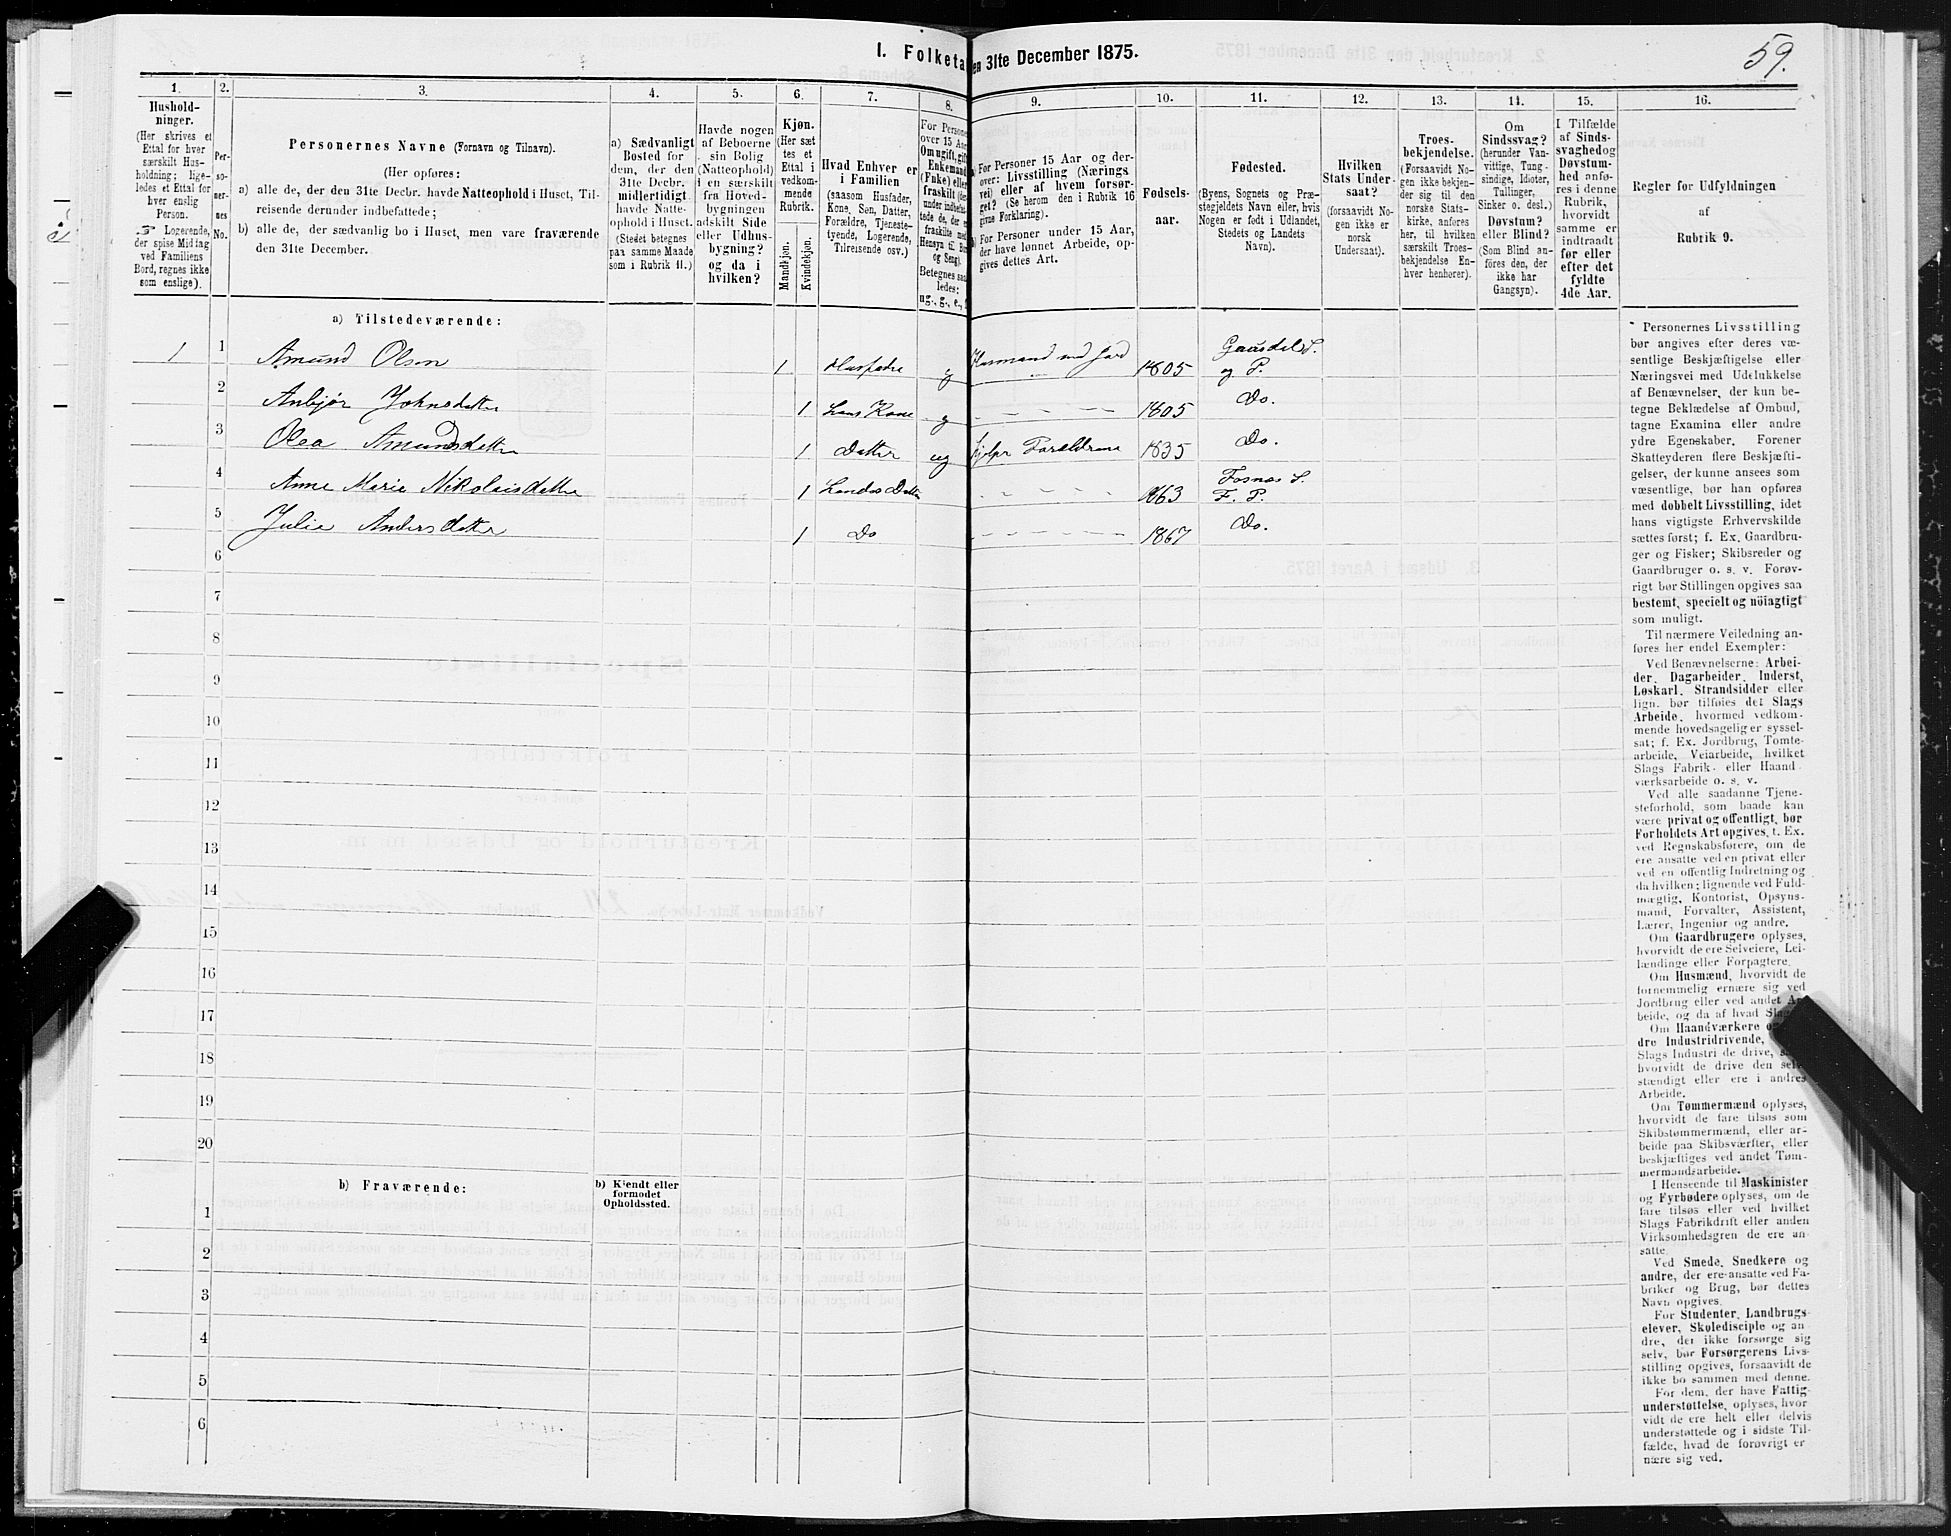 59.
I. Folketa
en 31te December 1875.
1.
2.
3.
4.
5.
6.
7.
8.
9.
10.
11.
12.
13.
14.
15.
16.
Hushold-
ninger.
(Her skrives et
Ettal for hver
særskilt Hus-
holdning; lige-
ledes et Ettal for
hver enslig
Person.
Logerende,
der spise Middag
ved Familiens
Bord, regnes ikke
som enslige).
Per-
so-
ner-
nes
No.
Personernes Navne (Fornavn og Tilnavn).
(Her opføres:
a) alle de, der den 31te Decbr. havde Natteophold i Huset, Til-
reisende derunder indbefattede;
b) alle de, der sædvanlig bo i Huset, men vare fraværende
den 31te December.
a) Sædvanligt
Bosted for
dem, der den
31te Decbr.
midlertidigt
havde Natte-
ophold i Huset.
(Stedet betegnes
paa samme Maade
som i Rubrik 11.)
Havde nogen
af Beboerne
sin Bolig
(Natteophold)
i en særskilt
fra Hoved-
bygningen
adskilt Side
eller Udhus-
bygning?
og da i
hvilken?
Kjøn.
(Her sæt
tes et
Ettal i
vedkom-
mende
Rubrik.
Mandkjøn.
Kvindekjøn.
Hvad Enhver er
i Familien
(saasom Husfader,
Kone, Søn, Datter,
Forældre, Tjeneste-
tyende, Logerende,
Tilreisende osv.)
For Persone
over 15 Aar
Om ugift, gift
Enkemand
(Enke) eller
fraskilt (der
under indbefat-
tede de, der er
fraskilte med
Hensyn til Bor
og Seng).
Betegnes saa
ledes:
ug., g., e., f.
a) For Personer 15 Aar og der-
over: Livsstilling (Nærings
vei) eller af hvem forsør-
get? (Se herom den i Rubrik 16
givne Forklaring).
b) For Personer under 15 Aar,
der have lønnet Arbeide, op-
gives dettes Art.
Fødsels-
aar.
Fødested.
(Byens, Sognets og Præ-
stegjeldets Navn eller, hvis
Nogen er født i Udlandet,
Stedets og Landets
Navn).
Hvilken
Stats Under-
saat?
(forsaavidt No-
gen ikke er
norsk
Undersaat).
Troes-
bekjendelse.
(Forsaavidt No-
gen ikke bekjen-
der sig til den
norske Stats-
kirke, anføres
her, til hvilken
særskilt Troes-
bekjendelse En-
hver henhører).
Om
Sindssvag?
(herunder Van-
vittige, Tung-
sindige, Idioter,
Tullinger,
Sinker o. desl.)
Døvstum?
eller Blind?
(Som Blind an-
føres den, der
ikke har
Gangsyn).
I Tilfælde
af Sinds-
svaghed og
Døvstum-
hed anfø-
res i denne
Rubrik,
hvorvidt
samme er
indtraadt
før eller
efter det
fyldte
4de Aar.
Regler for Udfyldningen
af
Rubrik 9.
a) Tilstedeværende:
1 1 Amund Olsen 1 Husfader g Husmand med Jord 1805 Gausdal S. og P.
2 Anbjør Johnsdatter 1 hans Kone g 1805 Do.
3 Olea Amundsdatter 1 Datter ug hjelper Forældrene 1835 Do.
4 Anne Marie Nikolaisdatter 1 1863 Fosnæs S. F. P.
5 Julie Andersdatter 1 Do 1867 Do.
6
7
8
9
10
11
12
13
14
15
16
17
18
19
20
b) Fraværende:
b) Kjendt eller
formodet
Opholdssted.
1
2
3
4
5
6
* Personernes Livsstilling
bør angives efter deres væ-
sentlige Beskjæftigelse eller
Næringsvei med Udelukkelse
af Benævnelser, der kun be-
tegne Beklædelse af Ombud,
tagne Examina eller andre
ydre Egenskaber. Forener
Skatteyderen flere Beskjæfti-
gelser, der kunne ansees som
væsentlige, bør han opføres
med dobbelt Livsstilling, idet
hans vigtigste Erhvervskilde
sættes først; f. Ex. Gaardbru-
ger og Fisker; Skibsreder og
Gaardbruger o. s. v. Forøv-
rigt bør Stillingen opgives saa
bestemt, specielt og nöiagtigt
som muligt.
Til nærmere Veiledning an-
føres her endel Exempler:
Ved Benævnelserne: Arbei-
der, Dagarbeider, Inderst,
Løskarl, Strandsidder eller
lign. bør tilføies det Slags
Arbeide, hvormed vedkom-
mende hovedsagelig er syssel-
sat; f. Ex. Jordbrug, Tomte-
arbeide, Veiarbeide, hvilket
Slags Fabrik- eller Haand-
værksarbeide o. s. v.
Ved alle saadanne Tjene-
steforhold, som baade kan
være privat og offentligt, bør
Forholdets Art opgives, t. Ex.
ved Regnskabsførere, om de
ere ansatte ved en privat eller
ved en offentlig Indretning og
da hvilken; lignende ved Fuld-
mægtig, Kontorist, Opsyns-
mand, Forvalter, Assistent,
Lærer, Ingeniør og andre.
Om Gaardbrugere oplyses,
hvorvidt de ere Selveiere, Lei-
lændinge eller Forpagtere.
Om Husmænd, hvorvidt de
fornemmelig ernære sig ved
Jordbrug eller ved andet Ar-
beide, og da af hvad Slags
Om Haandværkere o
dre Industridrivende,
Slags Industri de drive, s
hvorvidt de drive den sel
stændigt eller ere i andres
Arbeide.
Om Tømmermænd oplyses,
hvorvidt de fare tilsøs som
Skibstømmermænd, eller ar-
beide paa Skibsværfter, eller
beskjæftiges ved andet Tøm-
mermandsarbeide.
I Henseende til Maskinister
og Fyrbødere oplyses, om de
fare tilsøs eller ved hvilket
Slags Fabrikdrift eller anden
Virksomhedsgren de ere an-
satte.
Ved Smede, Snedkere og
andre, der ere ansatte ved Fa-
briker og Brug, bør dettes
Navn opgives.
For Studenter, Landbrugs-
elever, Skoledisciple og an
dre, der ikke forsørge sig
selv, bør Forsørgerens Livs-
stilling opgives, forsaavidt de
ikke bo sammen med denne.
For dem, der have Fattig-
understøttelse, oplyses, hvor
vidt de ere helt eller delvis
understøttede og i sidste Til-
fælde, hvad de forøvrigt er
nære sig ved.